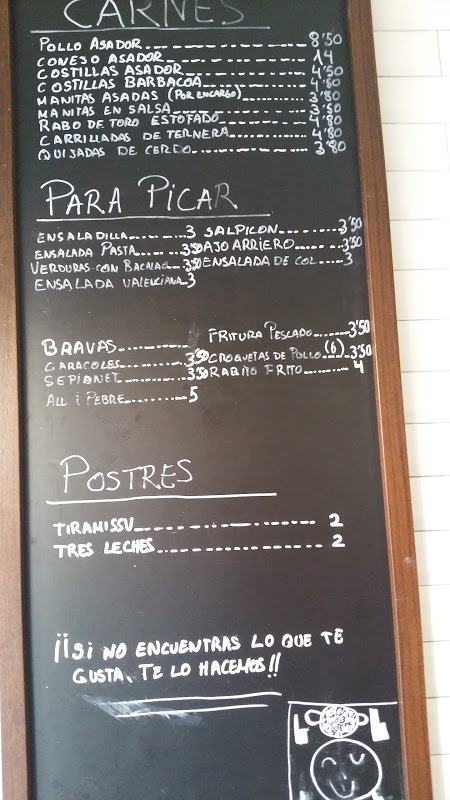 CARNES
POLLO ASADOR 8'50
CONEJO ASADOR 14
COSTILLAS ASADOR 4'50
COSTILLAS BARBACOA 4'80
MANITAS ASADAS (POR ENCARGO) 3'80
MANITAS EN SALSA 3'80
RABO DE TORO ESTOFADO 4'80
CARRILLADAS DE TERNERA 4'80
QUIJADAS DE CERDO 3'80
PARA PICAR
ENSALADILLA 3 SALPICON 3'50
ENSALADA PASTA 3'50 AJO ARRIERO 3'50
VERDURAS CON BACALAO 3'50 ENSALADA DE COL 3
ENSALADA VALENCIANA 3
FRITURA PESCADO 3'50
BRAVAS
CARACOLES 3'50 CROQUETAS DE POLLO (6) 3'50
SEPIONET 3'50 RABITO FRITO 4
ALL i PEBRE 5
POSTRES
TIRAMISSU 2
TRES LECHES 2
¡¡SI NO ENCUENTRAS LO QUE TE
GUSTA, TE LO HACEMOS!!